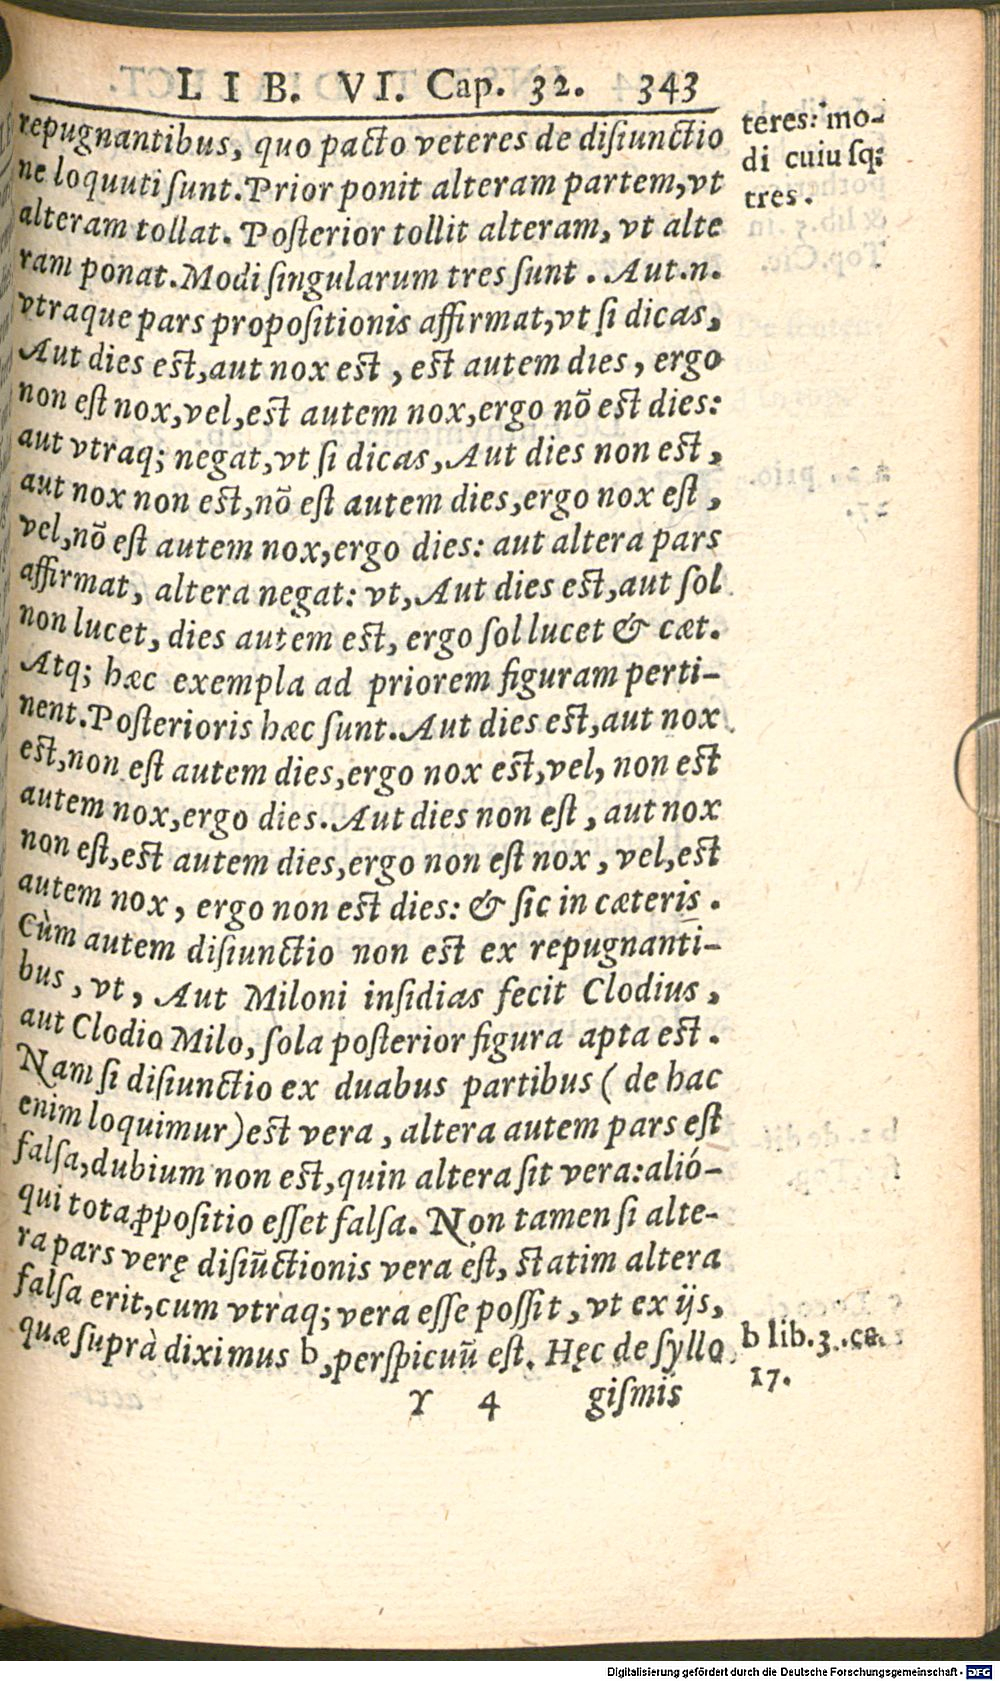 LIB. VI. Cap. 32. 343
repugnantibus, quo pacto veteres de disiunctio
ne loquuti sunt. Prior ponit alteram partem, vt
alteram tollat. Posterior tollit alteram, vt alte
ram ponat. Modi singularum tres sunt. Aut.n.
vtraque pars propositionis affirmat, vt si dicas,
Aut dies est, aut nox est, est autem dies, ergo
non est nox, vel, est autem nox, ergo nõ est dies:
aut vtraq; negat, vt si dicas, Aut dies non est,
aut nox non est, nõ est autem dies, ergo nox est,
vel, nõ est autem nox, ergo dies: aut altera pars
affirmat, altera negat: vt, Aut dies est, aut sol
non lucet, dies autem est, ergo sol lucet & cæt.
Atq; hæc exempla ad priorem figuram perti-
nent. Posterioris hæc sunt. Aut dies est, aut nox
est, non est autem dies, ergo nox est, vel, non est
autem nox, ergo dies. Aut dies non est, aut nox
non est, est autem dies, ergo non est nox, vel, est
autem nox, ergo non est dies: & sic in cæteris.
Cùm autem disiunctio non est ex repugnanti-
bus, vt, Aut Miloni insidias fecit Clodius,
aut Clodio Milo, sola posterior figura apta est.
Nam si disiunctio ex duabus partibus (de hac
enim loquimur) est vera, altera autem pars est
falsa, dubium non est, quin altera sit vera: alió-
qui tota ꝓpositio esset falsa. Non tamen si alte-
ra pars verę disiũctionis vera est, statim altera
falsa erit, cum vtraq; vera esse possit, vt ex ijs,
quæ suprà diximus b, perspicuũ est. Hęc de syllo
Y 4 gismis
teres: mo-
di cuiusq;
tres.
b lib. 3. ca.
17.
Digitalisierung gefördert durch die Deutsche Forschungsgemeinschaft - DFG